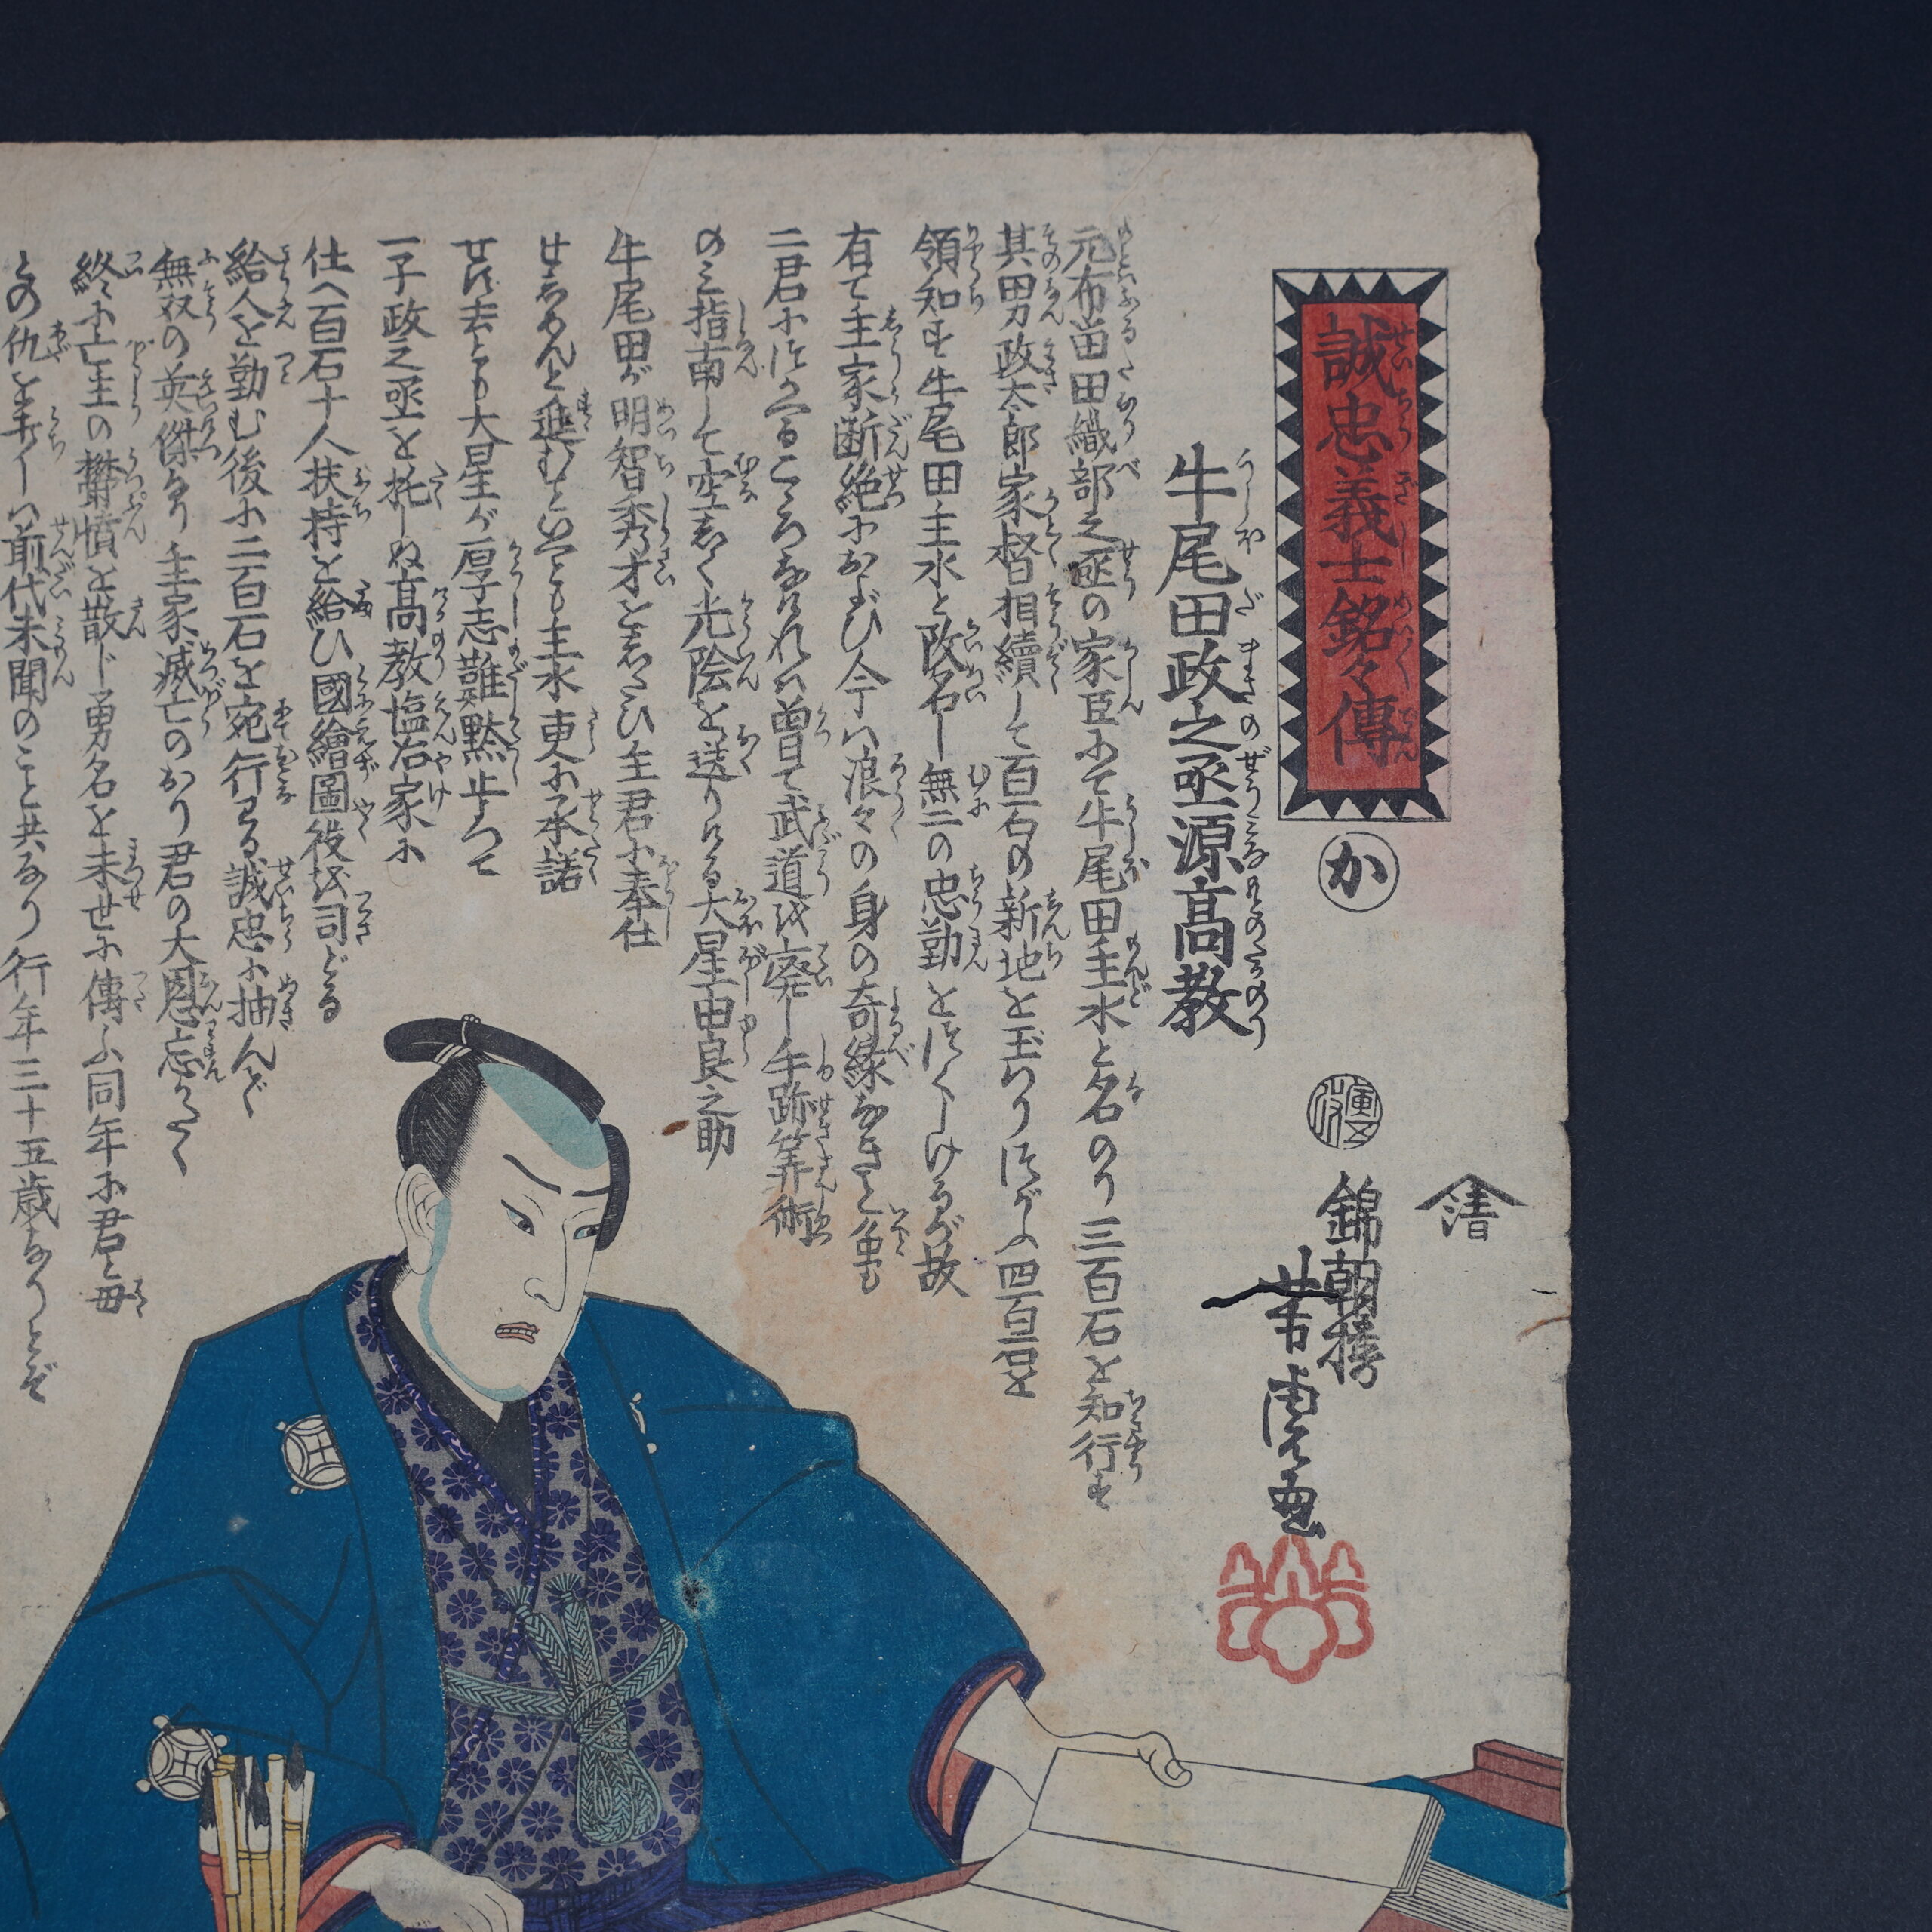 誠忠義士銘々傳
せいちうぎしめい〳〵でん
か
錦朝樓
芳虎画
清
牛尾田政之丞源高教
うしおだまさのぜうみなもとのたかのり
元布苗田織部之丞の家臣にて牛尾田主水と名のり三百石を知行す
其男政太郎家督相續して百石の新地を玉わりほどがふ四百石を
領知す牛尾田主水と改名し無二の忠勤をはげしけるが故
有て主家断絶におよび今ハ浪々の身の奇縁なきと
二君に
ころなけれバ曽て武道を廃し手跡筭術
のミ指南して空しく光陰を送りける大星由良之助
牛尾田が明智秀才をしたひ主君に奉仕
せしめんと進むといへども主水更に承諾
せず去とも大星が厚志難黙止して
一子政之丞を托しぬ高教塩冶家に
仕へ百石十人扶持を給ひ國繪圖役を司どる
給人を勤む後に二百石を宛行わる誠忠に抽んで
無双の英傑なり主家滅亡のおり君の大恩忘
終に亡主の欝憤を散じ勇名を末世に傳ふ同年に君と母
との仇を
ハ前代未聞のこと共なり行年三十五歳なりとぞ